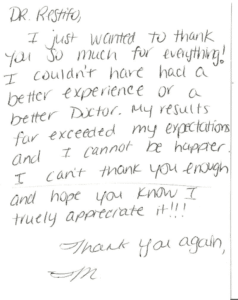 DR. Restifo,
I just wanted to thank
you so much for everything!
I couldn't have had a
better experience or a
better Doctor. My results
far exceeded my expectations
and I cannot be happier.
I can't thank you enough
and hope you know I
truely appreciate it!!!
Thank you again,